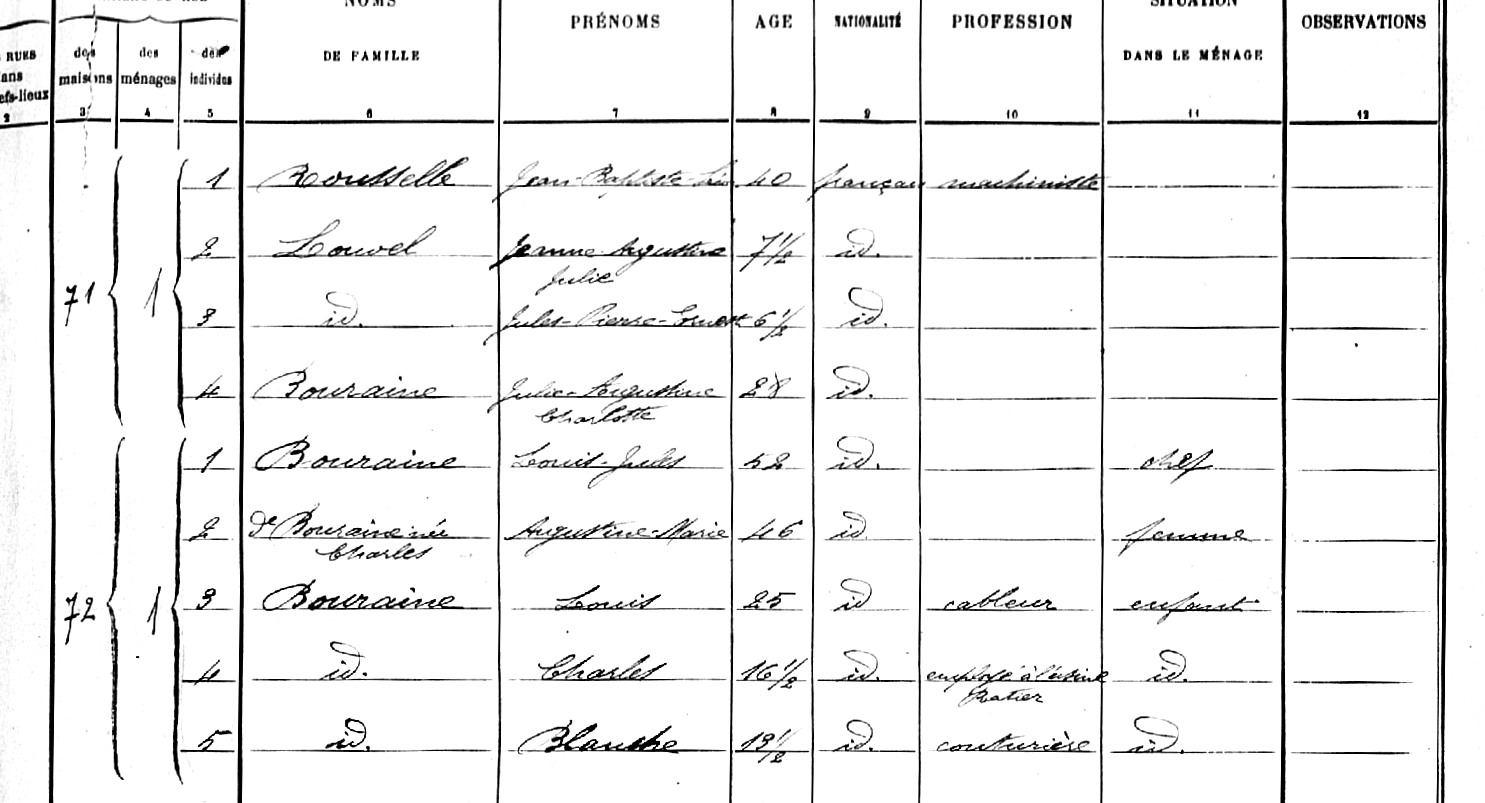 NOMS SITUATION
PRÉNOMS AGE NATIONALITÉ PROFESSION OBSERVATIONS
RUES des des des DE FAMILLE DANS LE MÉNAGE
maisons ménages individus
2 3 4 5 6 7 8 9 10 11 12
71 1
1 Rousselle Jean-Baptiste- 40 français machiniste
2 Louvel Jeanne Augustine 7 1/2 id.
Julie
3 id. Jules-Pierre-Ernest 6 1/2 id.
4 Bouraine Julie-Augustine 28 id.
Charlotte
72 1
1 Bouraine Louis-Jules 52 id. chef
2 De Bouraine née Augustine-Marie 46 id femme
Charles
3 Bouraine Louis 25 id cableur enfant
4 id. Charles 16 1/2 id. employé à l'usine id.
Ratier
5 id. Blanche 13 1/2 id. couturière id.